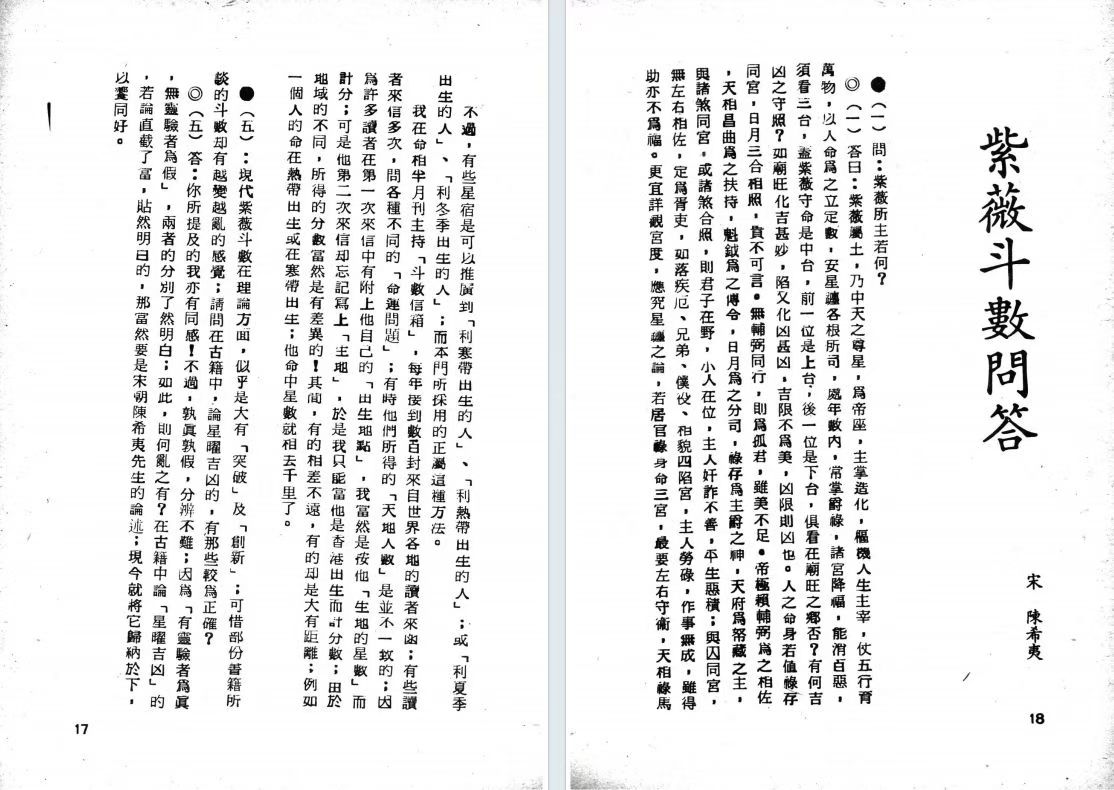 不過,有些星宿是可以推廣到「利寒帶出生的人」、「利熱帶出生的人」;或「利夏季
出生的人」、「利冬季出生的人」;而本門所採用的正屬這種方法。
我在命相半月刊主持「斗數信箱」,每年接到數百封來自世界各地的讀者來函;有些讀
者來信多次,問各種不同的「命運問題」;有時他們所得的「天地人數」是並不一致的;因
爲許多讀者在第一次來信中有附上他自己的「出生地點」,我當然是按他「生地的星數」而
計分;可是他第二次來信却忘記寫上「生地」,於是我只能當他是香港出生而計分數;由於
地域的不同,所得的分數當然是有差異的!其間,有的相差不遠,有的却是大有距離;例如
一個人的命在熱帶出生或在寒帶出生;他命中星數就相去千里了。
●(五):現代紫薇斗數在理論方面,似乎是大有「突破」及「創新」;可惜部份書籍所
談的斗數却有越變越亂的感覺;請問在古籍中,論星曜吉凶的,有那些較爲正確?
◎(五)答:你所提及的我亦有同感!不過,孰眞孰假,分辨不難;因爲「有靈驗者爲眞
,無靈驗者爲假」,兩者的分別了然明白;如此,則何亂之有?在古籍中論「星曜吉凶」的
,若論直截了當,貼然明白的,那當然要是宋朝陳希夷先生的論述;現今就將它歸納於下,
以饗同好。
17
紫薇斗數問答
宋 陳希夷
●(一)問:紫薇所主若何?
◎(一)答曰:紫薇屬土,乃中天之尊星,爲帝座,主掌造化,樞機人生主宰,仗五行育
萬物,以人命爲之立定數,安星纏各根所司,處年數內,常掌爵祿,諸宮降福,能消百惡,
須看三台,蓋紫薇守命是中台,前一位是上台,後一位是下台,俱看在廟旺之鄉否?有何吉
凶之守照?如廟旺化吉甚妙,陷又化凶甚凶,吉限不爲美,凶限則凶也。人之命身若值祿存
同宮,日月三合相照,貴不可言。無輔弼同行,則爲孤君,雖美不足。帝極賴輔弼爲之相佐
,天相昌曲爲之扶持,魁鉞爲之傳令,日月爲之分司,祿存爲主爵之神,天府爲帑藏之主,
與諸煞同宮,或諸煞合照,則君子在野,小人在位,主人奸詐不善,平生惡積;與囚同宮,
無左右相佐,定爲胥吏,如落疾厄、兄弟、僕役、相貌四陷宮,主人勞碌,作事無成,雖得
助亦不爲福。更宜詳觀宮度,應究星纏之論,若居官祿身命三宮,最要左右守衞,天相祿馬
18